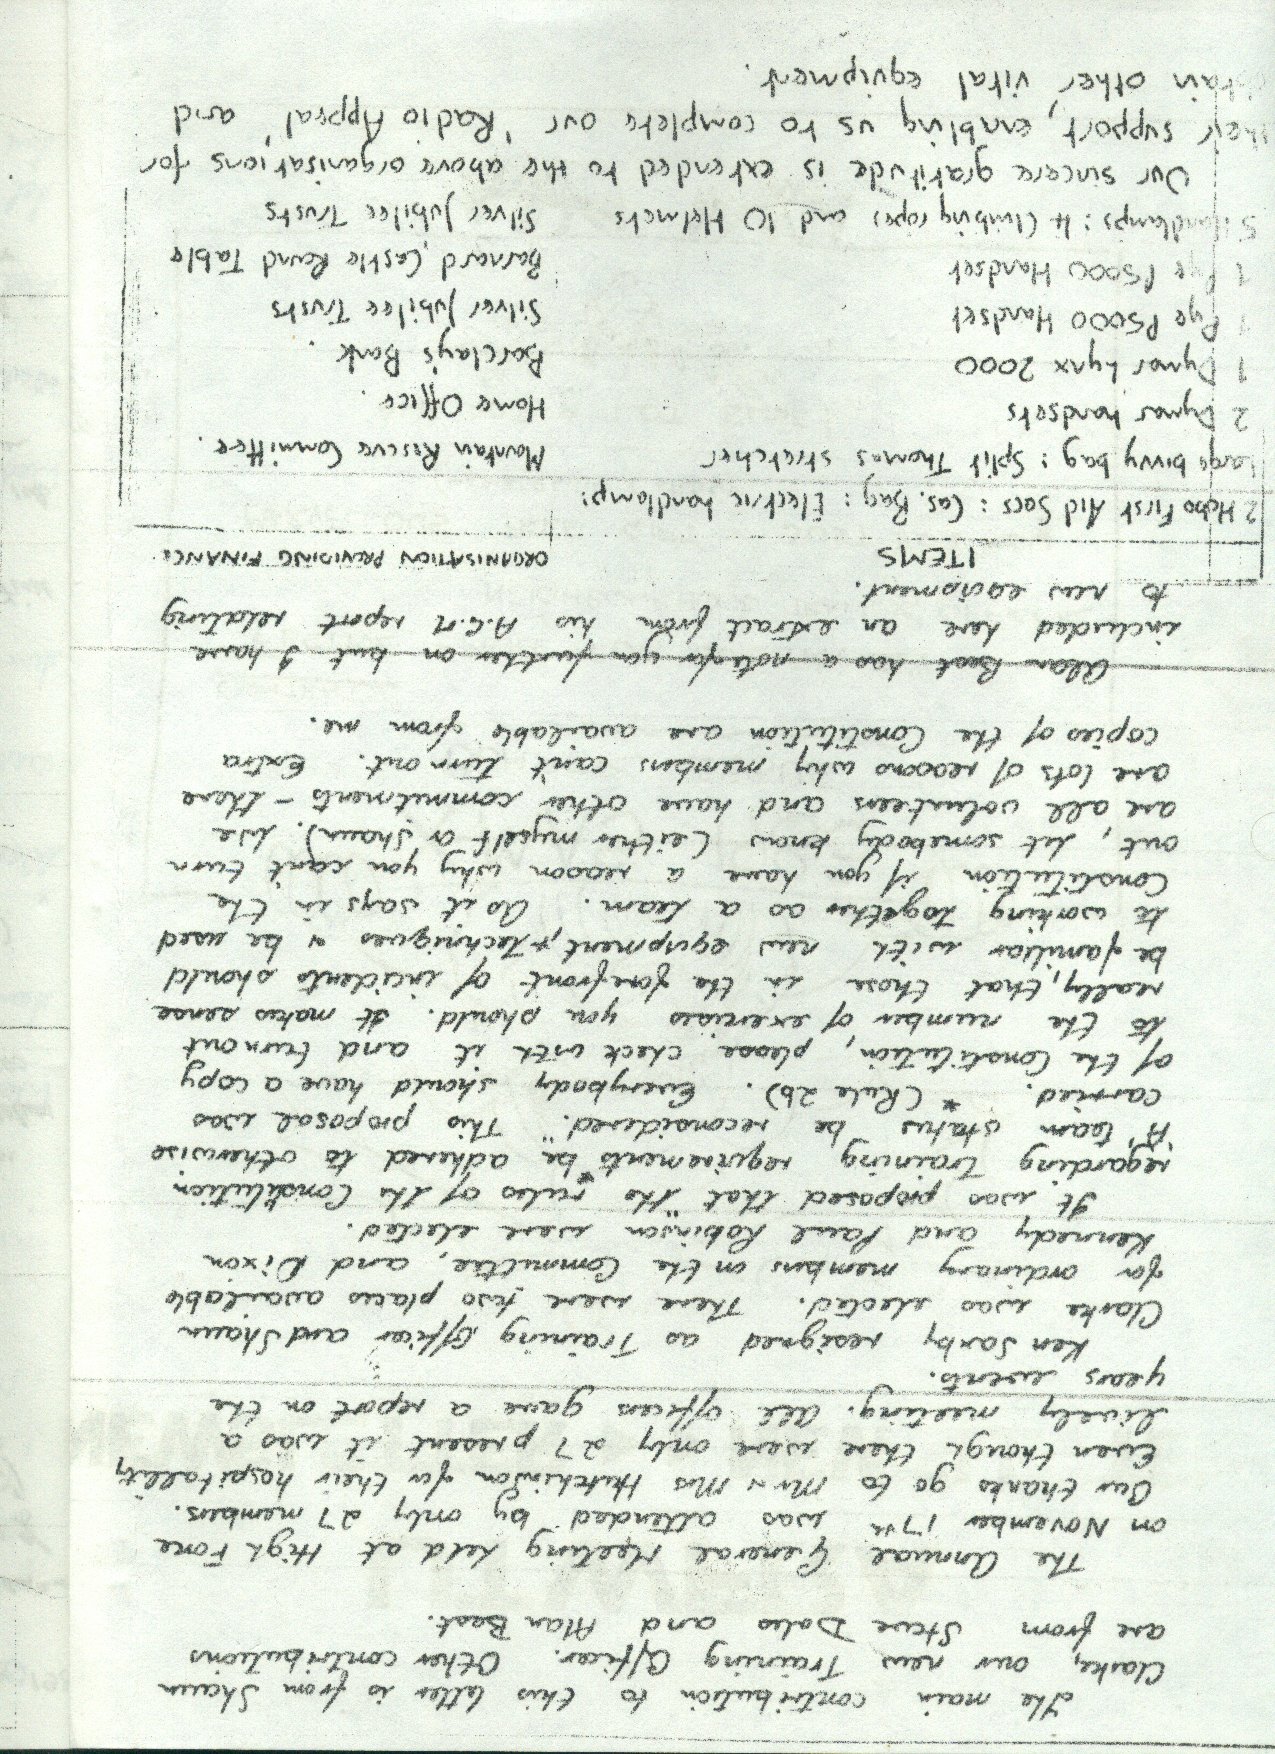 The main contribution to this letter is from Shaun
Clarke, our new Training Officer. Other contributions
are from Steve Dales and Alan Best.
The Annual General Meeting held at High Force
on November 17th was attended by only 27 members.
Our thanks go to Mr & Mrs Hutchinson for their hospitallity
Even though there were only 27 present it was a
lively meeting. All officers gave a report on the
years events.
Ken Saxby resigned as Training Officer and Shaun
Clarke was elected. There were two places available
for ordinary members on the Committee, and Dixon
Kennedy and Paul Robinson were elected.
It was proposed that "the rules* of the Constitution
regarding training requirements be adhered to otherwise
'A' team status be reconsidered." This proposal was
carried. * (Rule 2b). Everybody should have a copy
of the Constitution, please check with it and turnout
to the number of exercises you should. It makes sense
really, that those in the forefront of incidents should
be familiar with new equipment, + techniques & be used
to working together as a team. As it says in the
Constitution if you have a reason why you can't turn
out, let somebody know (either myself or Shaun). We
are all volunteers and have other commitments - there
are lots of reasons why members can't turn out. Extra
copies of the Constitution are available from me.
Alan Best has a note for you further on but I have
included here an extract from his A.G.M report relating
to new equipment.
ITEMS ORGANISATION PROVIDING FINANCE
2 First Aid Sacs : Cas. Bag : Electric handlamp:
Large bivvy bag : Split Thomas stretcher Mountain Rescue Committee.
2 Dymar handsets Home Office.
1 Dymar Lynx 2000 Barclay's Bank.
1 Pye P5000 Handset Silver Jubilee Trusts
1 Pye P5000 Handset Barnard Castle Round Table
5 Handlamps : 4 Climbing ropes and 10 Helmets Silver Jubilee Trusts
Our sincere gratitude is extended to the above organisations for
their support, enabling us to complete our 'Radio Appeal' and
obtain other vital equipment.